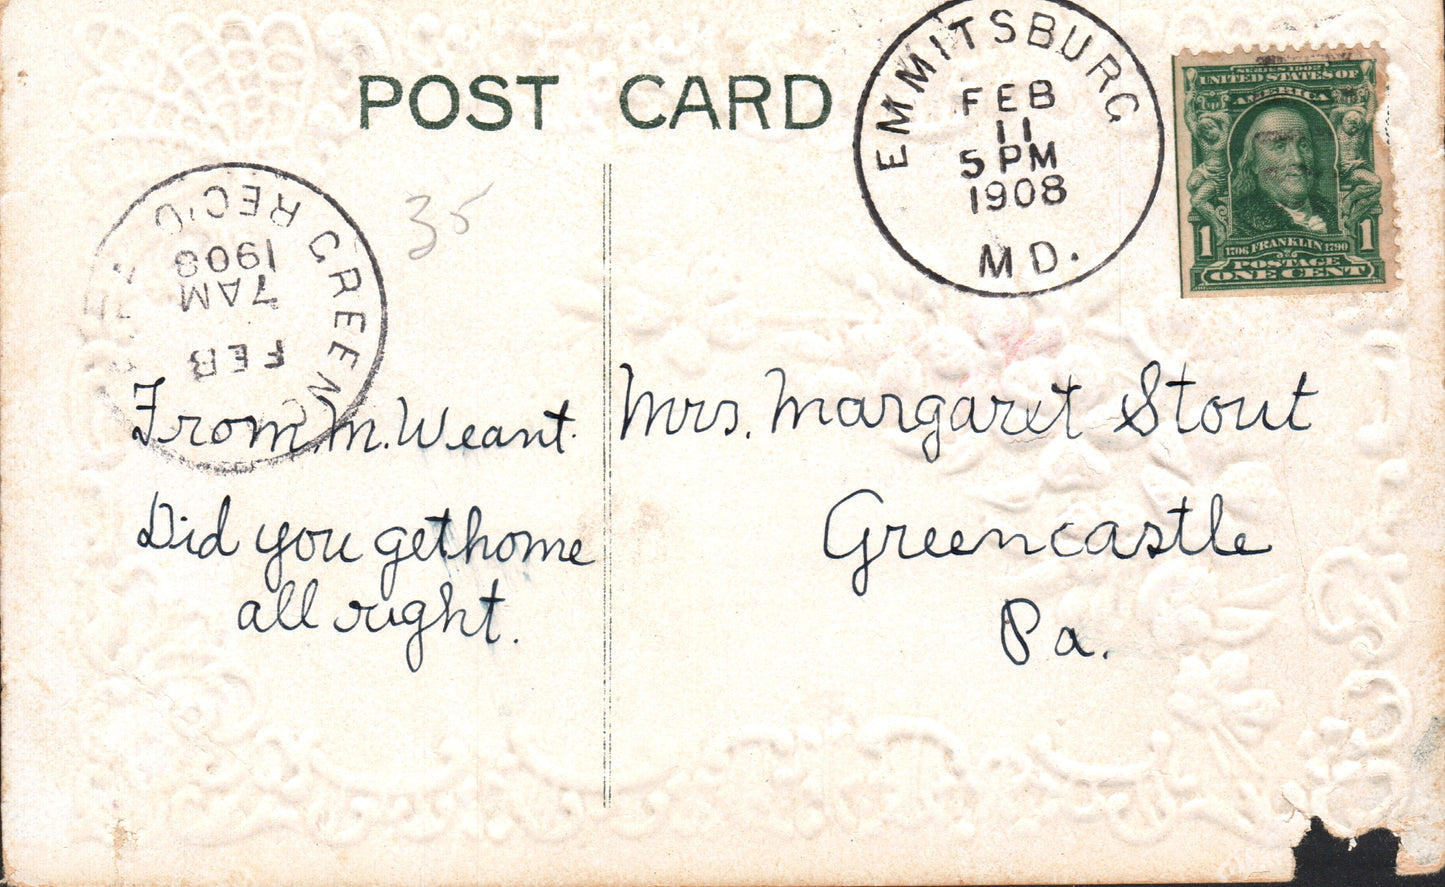 POST CARD
EMMITSBURG
FEB
11
5 PM
1908
MD.
SERIES 1902
UNITED STATES OF
AMERICA
1706 FRANKLIN 1790
1 1
POSTAGE
ONE CENT
REC'D
1908
7 AM
FEB
35
From M. Weant.
Did you get home
all right.
Mrs. Margaret Stout
Greencastle
Pa.